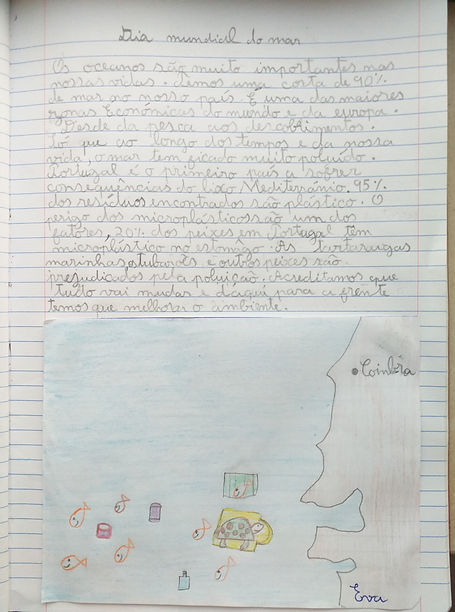 Dia mundial do mar
Os oceanos são muito importantes nas
nossas vidas. Temos uma costa de 90%
de mar no nosso país É uma das maiores
zonas Económicas do mundo e da europa.
Desde da pesca aos descobrimentos.
Só que ao longo dos tempos e da nossa
vida, o mar tem ficado muito poluído.
Portugal é o primeiro país a sofrer
consequências do lixo Mediterrânio. 95%
dos resíduos encontrados são plástico. O
perigo dos microplásticos são um dos
fatores, 20% dos peixes em Portugal têm
microplástico no estômago. As tartarugas
marinhas, tubarões e outros peixes são
prejudicados pela poluição. Acreditamos que
tudo vai mudar e daqui para a frente
temos que melhorar o ambiente.
Coimbra
Eva